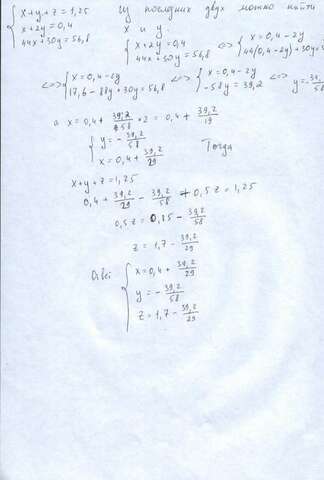 { x+y+z=1,25
x+2y=0,4
44x+30y=56,8
Из последних двух можно найти
x и y.
{ x+2y=0,4
44x+30y=56,8
<=> { x=0,4-2y
44(0,4-2y)+30y=
<=> { x=0,4-2y
17,6-88y+30y=56,8
<=> { x=0,4-2y
-58y=39,2
<=> y=-
а x=0,4+39,2/58*2=0,4+39,2/29
{ y=-39,2/58
x=0,4+39,2/29
Тогда
x+y+z=1,25
0,4+39,2/29-39,2/58+0,5z=1,25
0,5z=0,85-39,2/58
z=1,7-39,2/29
Ответ { x=0,4+39,2/29
y=-39,2/58
z=1,7-39,2/29